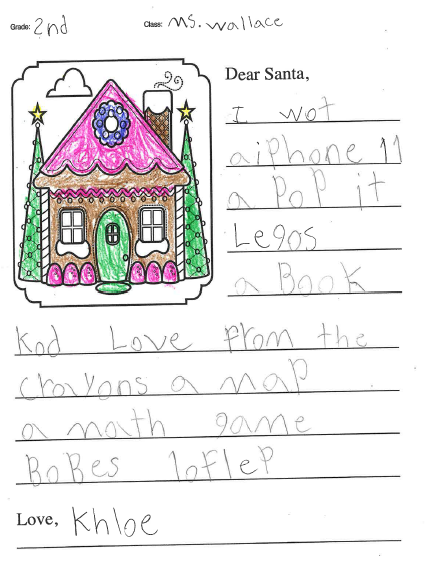 Grade: 2nd Class: Ms. Wallace
Dear Santa,
I wot
aiphone 11
a PoP it
Legos
a Book
kod Love from the
crayons a map
a math game
BoBes loflep
Love, Khloe